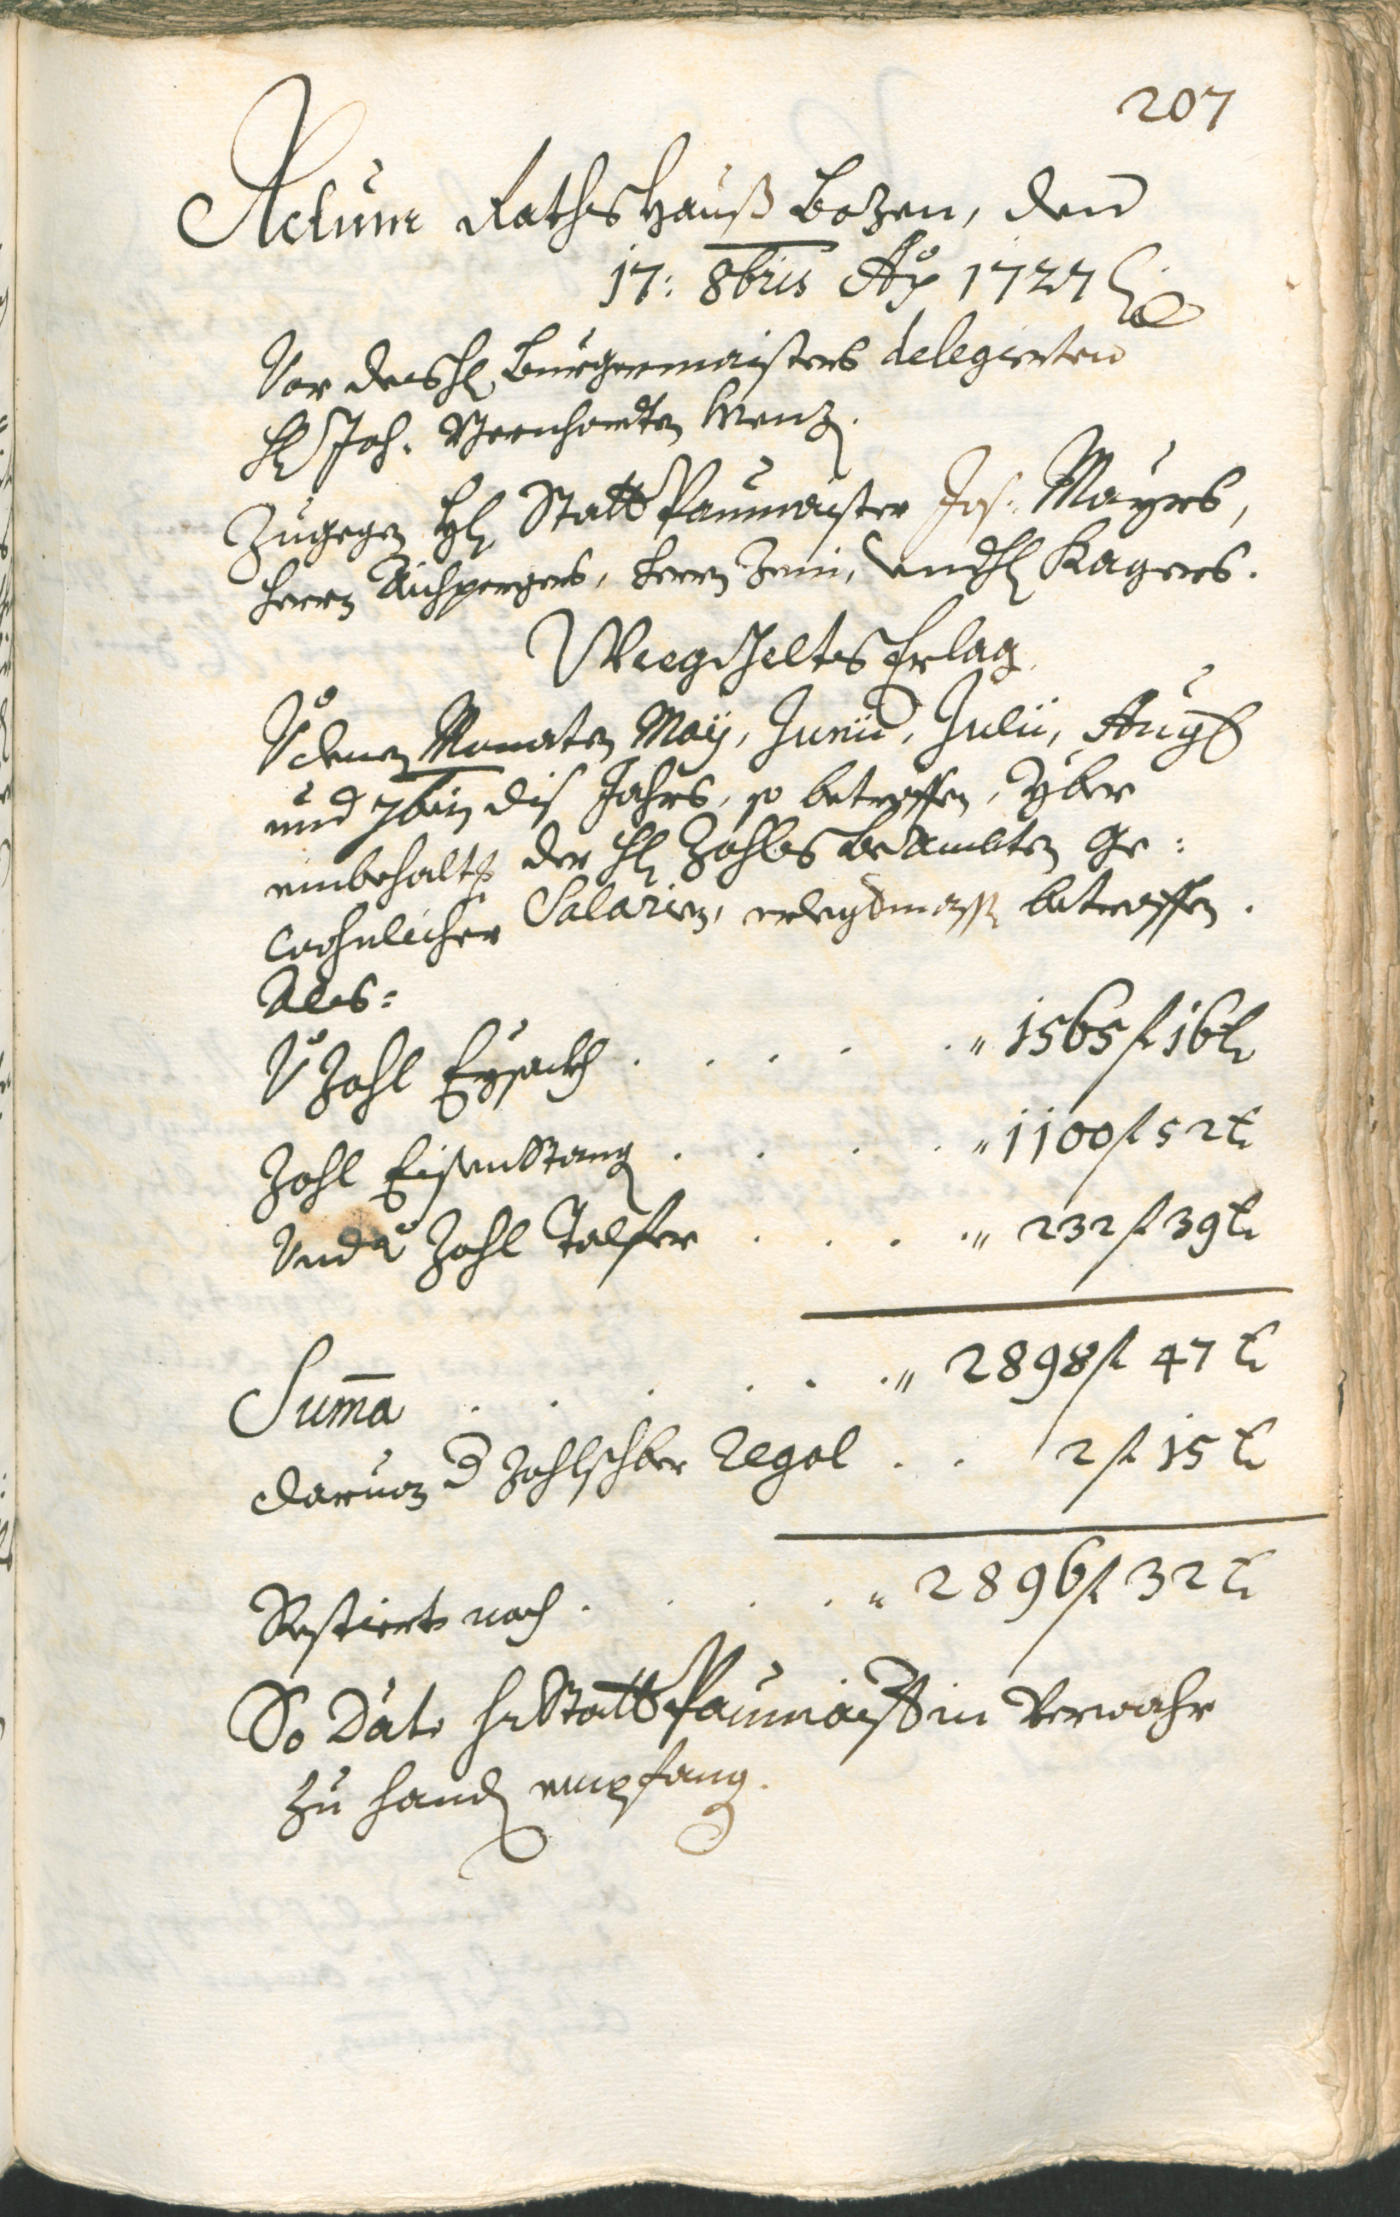 207
Actum Rathshauß Bozen, den
17: 8bris Ao 1727
Vor des H: Burgermaisters delegierten
H: Joh. Bernhardten Menz.
Zugegen H: Statt Paumaister Jos: Mayrs,
Herrn Aichpergers, Herrn Zeni, und H: Kagers.
Weeg Gelts Erlag.
Von denen Monaten May, Junii, Julii, Aug:
und 7bris dis Jahrs, so betroffen, yber
einbehalts der H: Zohls Beambten ge=
wohnlicher Salarien, erlegtmass betroffen.
Als:
Vo Zohl Eysackh . . . . . " 1565 fl 16 kr
Zohl Eisenstang . . . . " 1100 fl 52 kr
Und Zohl Talfer . . . . " 232 fl 39 kr
Suma . . . . . . " 2898 fl 47 kr
daruon d Zohlschber Regal . . 2 fl 15 kr
Restiert noch . . . . " 2896 fl 32 kr
So Dato H: Statt Paumaister in Verwahr
zu handen empfang.